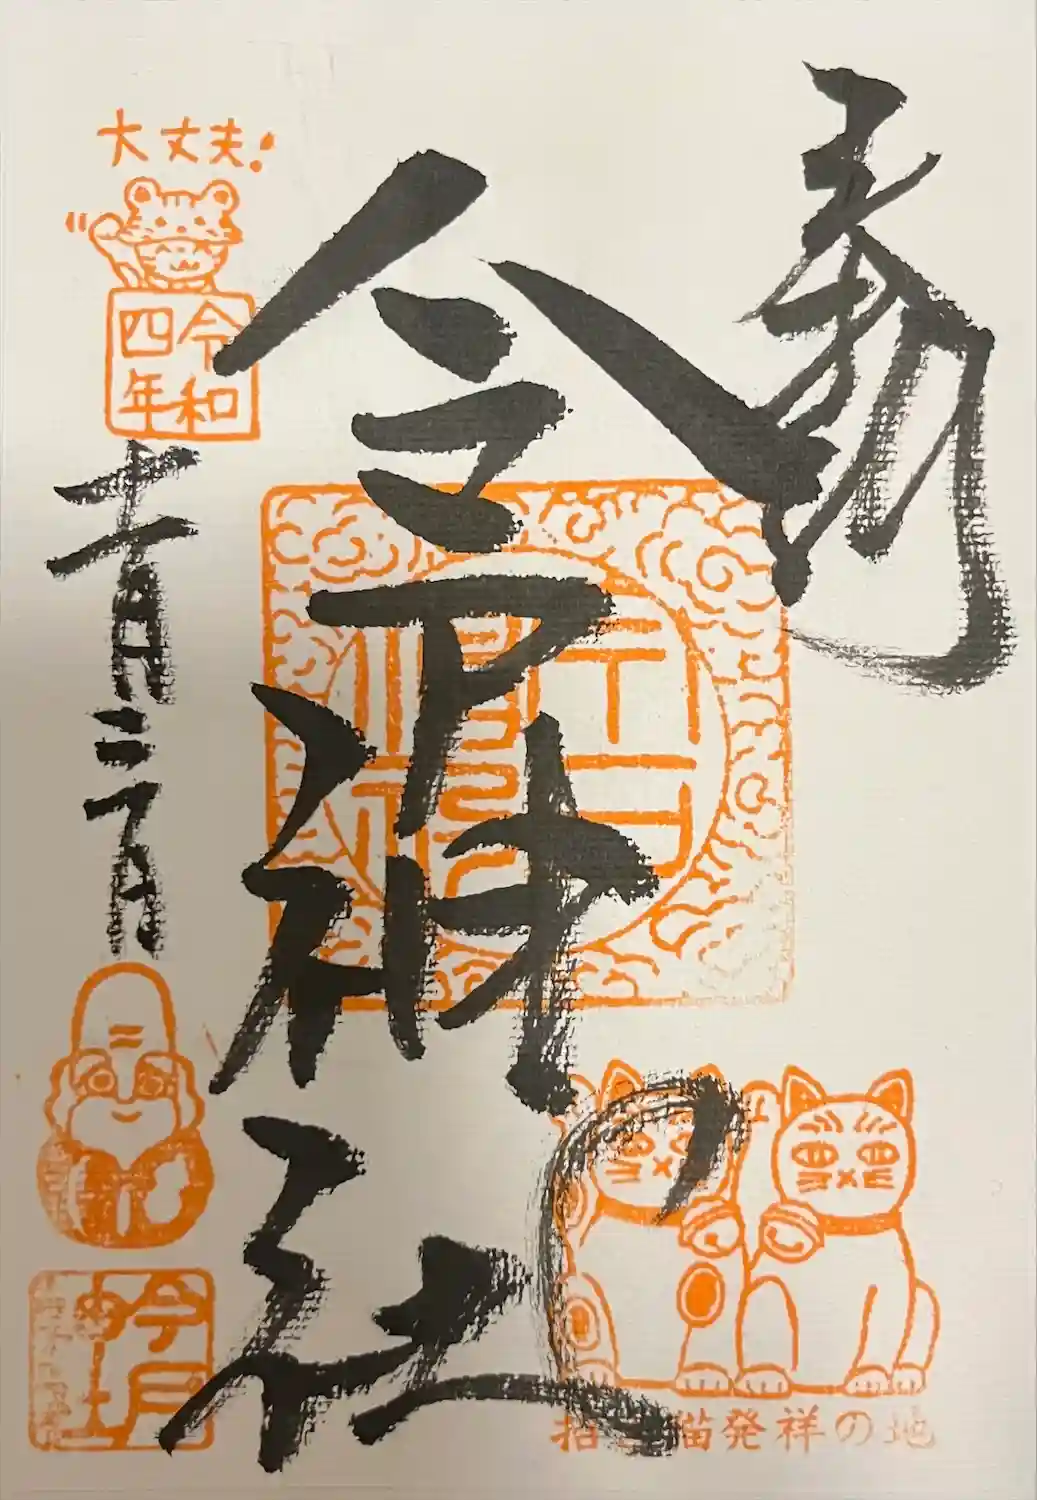 大丈夫!
令和
四年
十一月三日
今戸神社
今戸
招き猫発祥の地